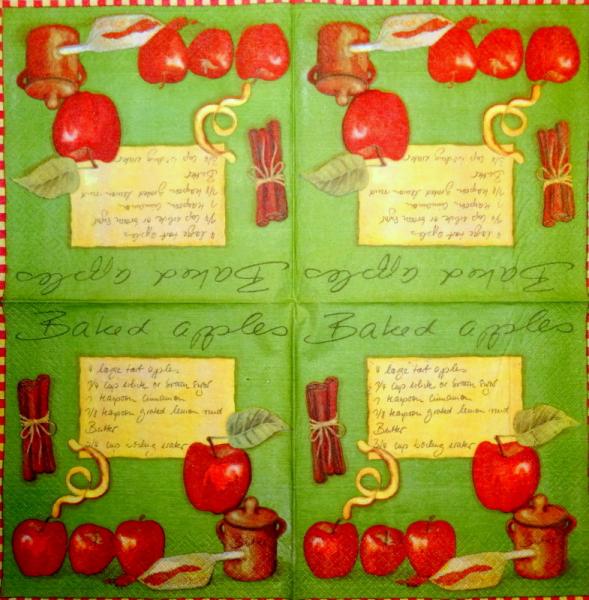 Baked apples
4 lage tart apples
3/4 cup white or brown sugar
1 teaspoon cinnamon
1/8 teaspoon grated lemon rind
Butter
3/4 cup boiling water
Baked apples
4 lage tart apples
3/4 cup white or brown sugar
1 teaspoon cinnamon
1/8 teaspoon grated lemon rind
Butter
3/4 cup boiling water
Baked apples
4 lage tart apples
3/4 cup white or brown sugar
1 teaspoon cinnamon
1/8 teaspoon grated lemon rind
Butter
3/4 cup boiling water
Baked apples
4 lage tart apples
3/4 cup white or brown sugar
1 teaspoon cinnamon
1/8 teaspoon grated lemon rind
Butter
3/4 cup boiling water